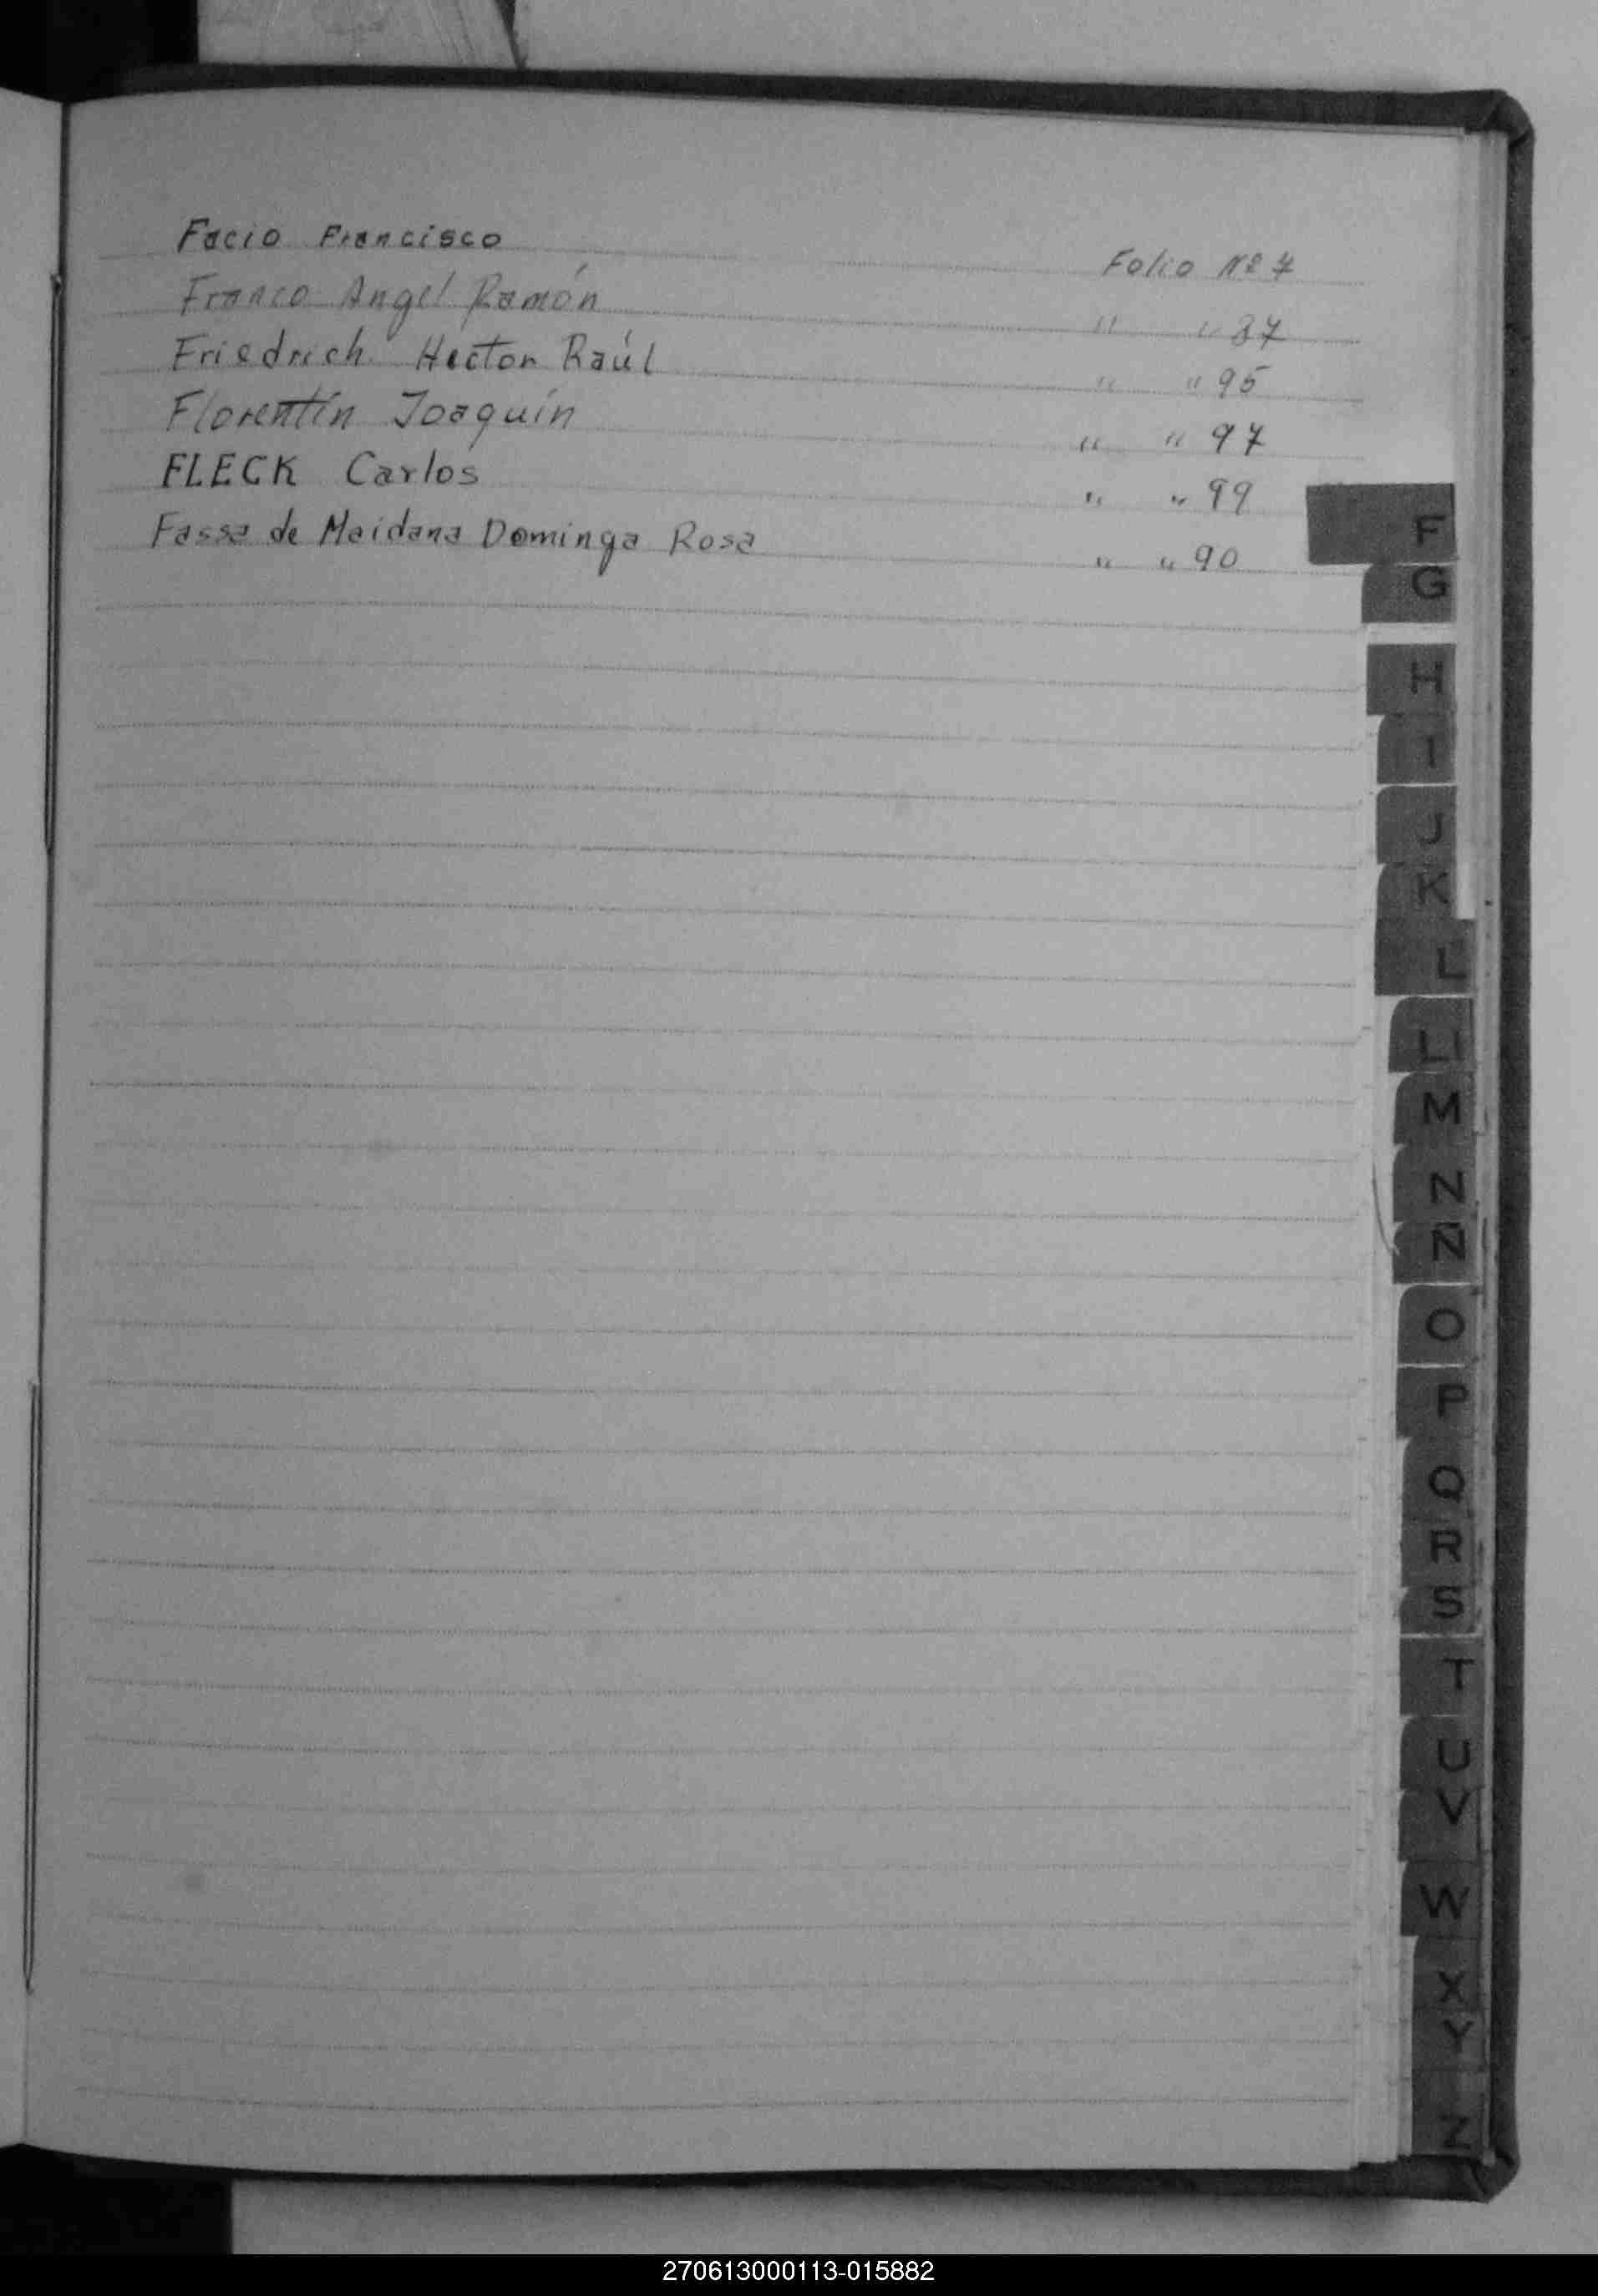 Facio Francisco Folio Nº 7
Franco Angel Ramón " " 87
Friedrich Hector Raúl " " 95
Florentín Joaquín " " 97
FLECK Carlos " " 99
Fassa de Maidana Dominga Rosa " " 90
F
G
H
I
J
K
L
LL
M
N
Ñ
O
P
Q
R
S
T
U
V
W
X
Y
Z
270613000113-015882